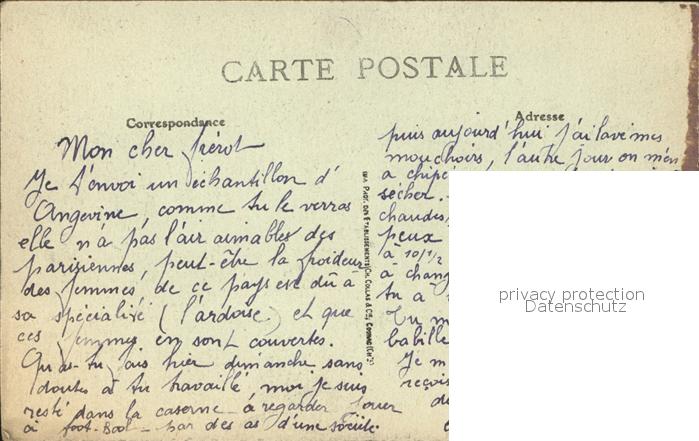 CARTE POSTALE
Correspondance
Adresse
Mon cher frérot
Je t'envoi un échantillon d'
Angevine, comme tu le verras
elle n'a pas l'air aimables des
parisiennes, peut-être la froideur
des femmes de ce pays est dû à
sa spécialité (l'ardoise) et que
ces femmes en sont couvertes.
Qu'as-tu fais hier dimanche sans
doutes a tu travaillé, moi je suis
resté dans la caserne à regarder jouer
à foot-Bool par des as d'une société.
puis aujourd'hui j'ai lavé mes
mouchoirs, l'autre jour on m'en
a chipé
sécher.
chaudes
peux
à 10/1/2
à chang
tu a
Tu m
babille
Je m
reçois
de
IMP. PHOT. DES ETABLISSEMENTS CH. COLLAS & Cie, COGNAC (Chte)
privacy protection
Datenschutz